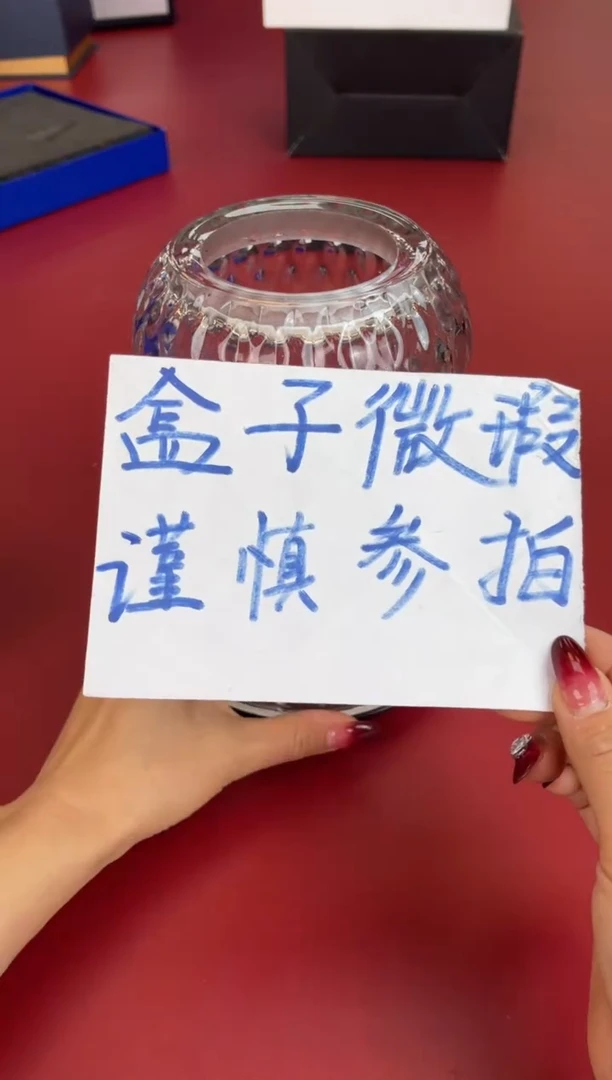 盒子微瑕
谨慎参拍